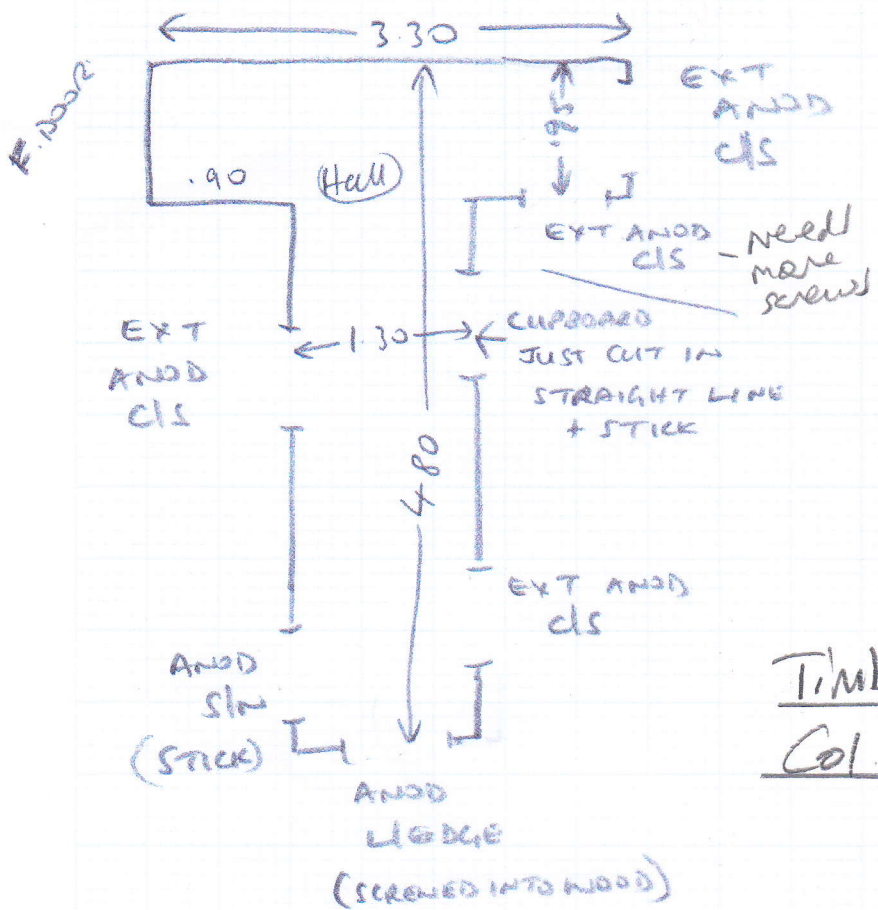 3.30
F. DOOR
.95
EXT
ANOD
C/S
.90
Hall
EXT ANOD
C/S - Need
more
screws
EXT
ANOD
C/S
1.30
CUPBOARD
JUST CUT IN
STRAIGHT LINE
+ STICK
4.80
EXT ANOD
C/S
ANOD
S/N
(STICK)
Col.
ANOD
WEDGE
(SCREWED INTO WOOD)